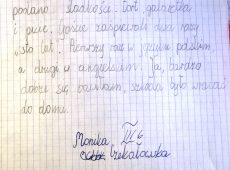 podano słodkości: tort, galaretka
i picie. Goście zaśpiewali dwa razy
„sto lat". Pierwszy raz w języku polskim,
a drugi w angielskim. Ja, bardzo
dobrze się bawiłam, szkoda było wracać
do domu.
Monika III b